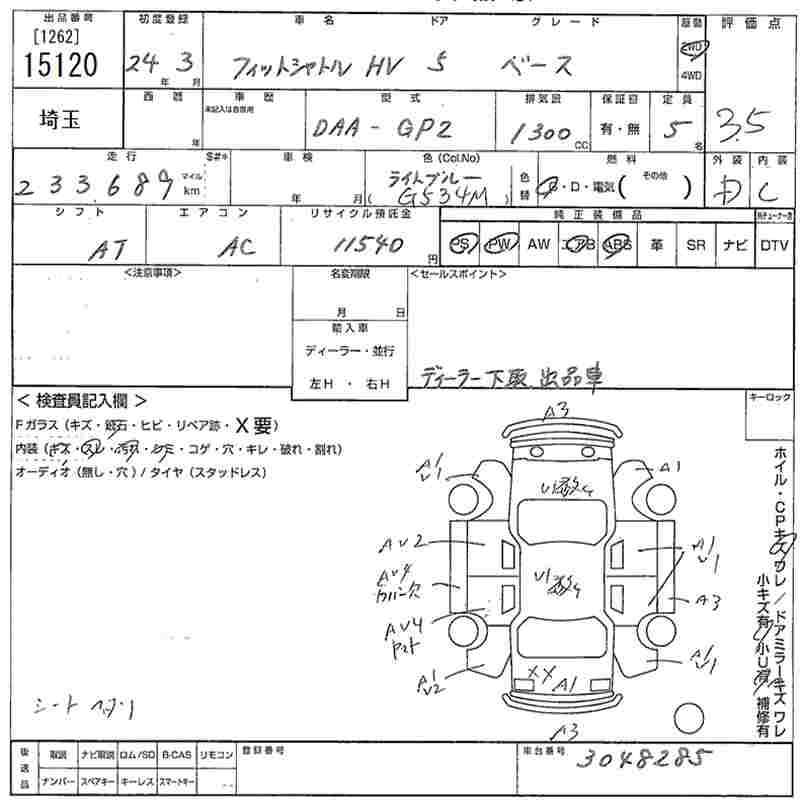 出品番号 初度登録 車名 ドア グレード 駆動 評価点
[1262]
15120 24 3 フィットシャトル HV 5 ベース 2WD
年 月 4WD
埼玉 西暦 車歴 型式 排気量 保証書 定員 3.5
未記入は自家用
年 DAA-GP2 1300 CC 有・無 5 名
走行 S#* 車検 色(Col.No) 燃料 外装 内装
233,689 マイル km 年 月 ライトブルー 色替 G・D・電気( その他 ) D C
( G534M )
シフト エアコン リサイクル預託金 純正装備品
AT AC 11540 円 PS PW AW エアB ABS 革 SR ナビ DTV
<注意事項> 名変期限 <セールスポイント>
月 日
輸入車
ディーラー・並行
左H ・ 右H ディーラー下取 出品車
< 検査員記入欄 > キーロック
Fガラス (キズ・飛石・ヒビ・リペア跡・X要)
内装 (キズ・スレ・汚れ・シミ・コゲ・穴・キレ・破れ・割れ)
オーディオ (無し・穴) / タイヤ (スタッドレス)
A3
A1 U1 A1
U1散
AU2 A1 U1
AU4 カバー欠 U1散 A3
AU4 ヤマト
A1 U2 XX A1 A1 U1
A3
ホイル・CPキズワレ / ドアミラーキズワレ
小キズ有 小U有 補修有
シート ヘタリ
後送品 取説 ナビ取説 ロム/SD B-CAS リモコン 登録番号 車台番号
ナンバー スペアキー キーレス スマートキー 3048285